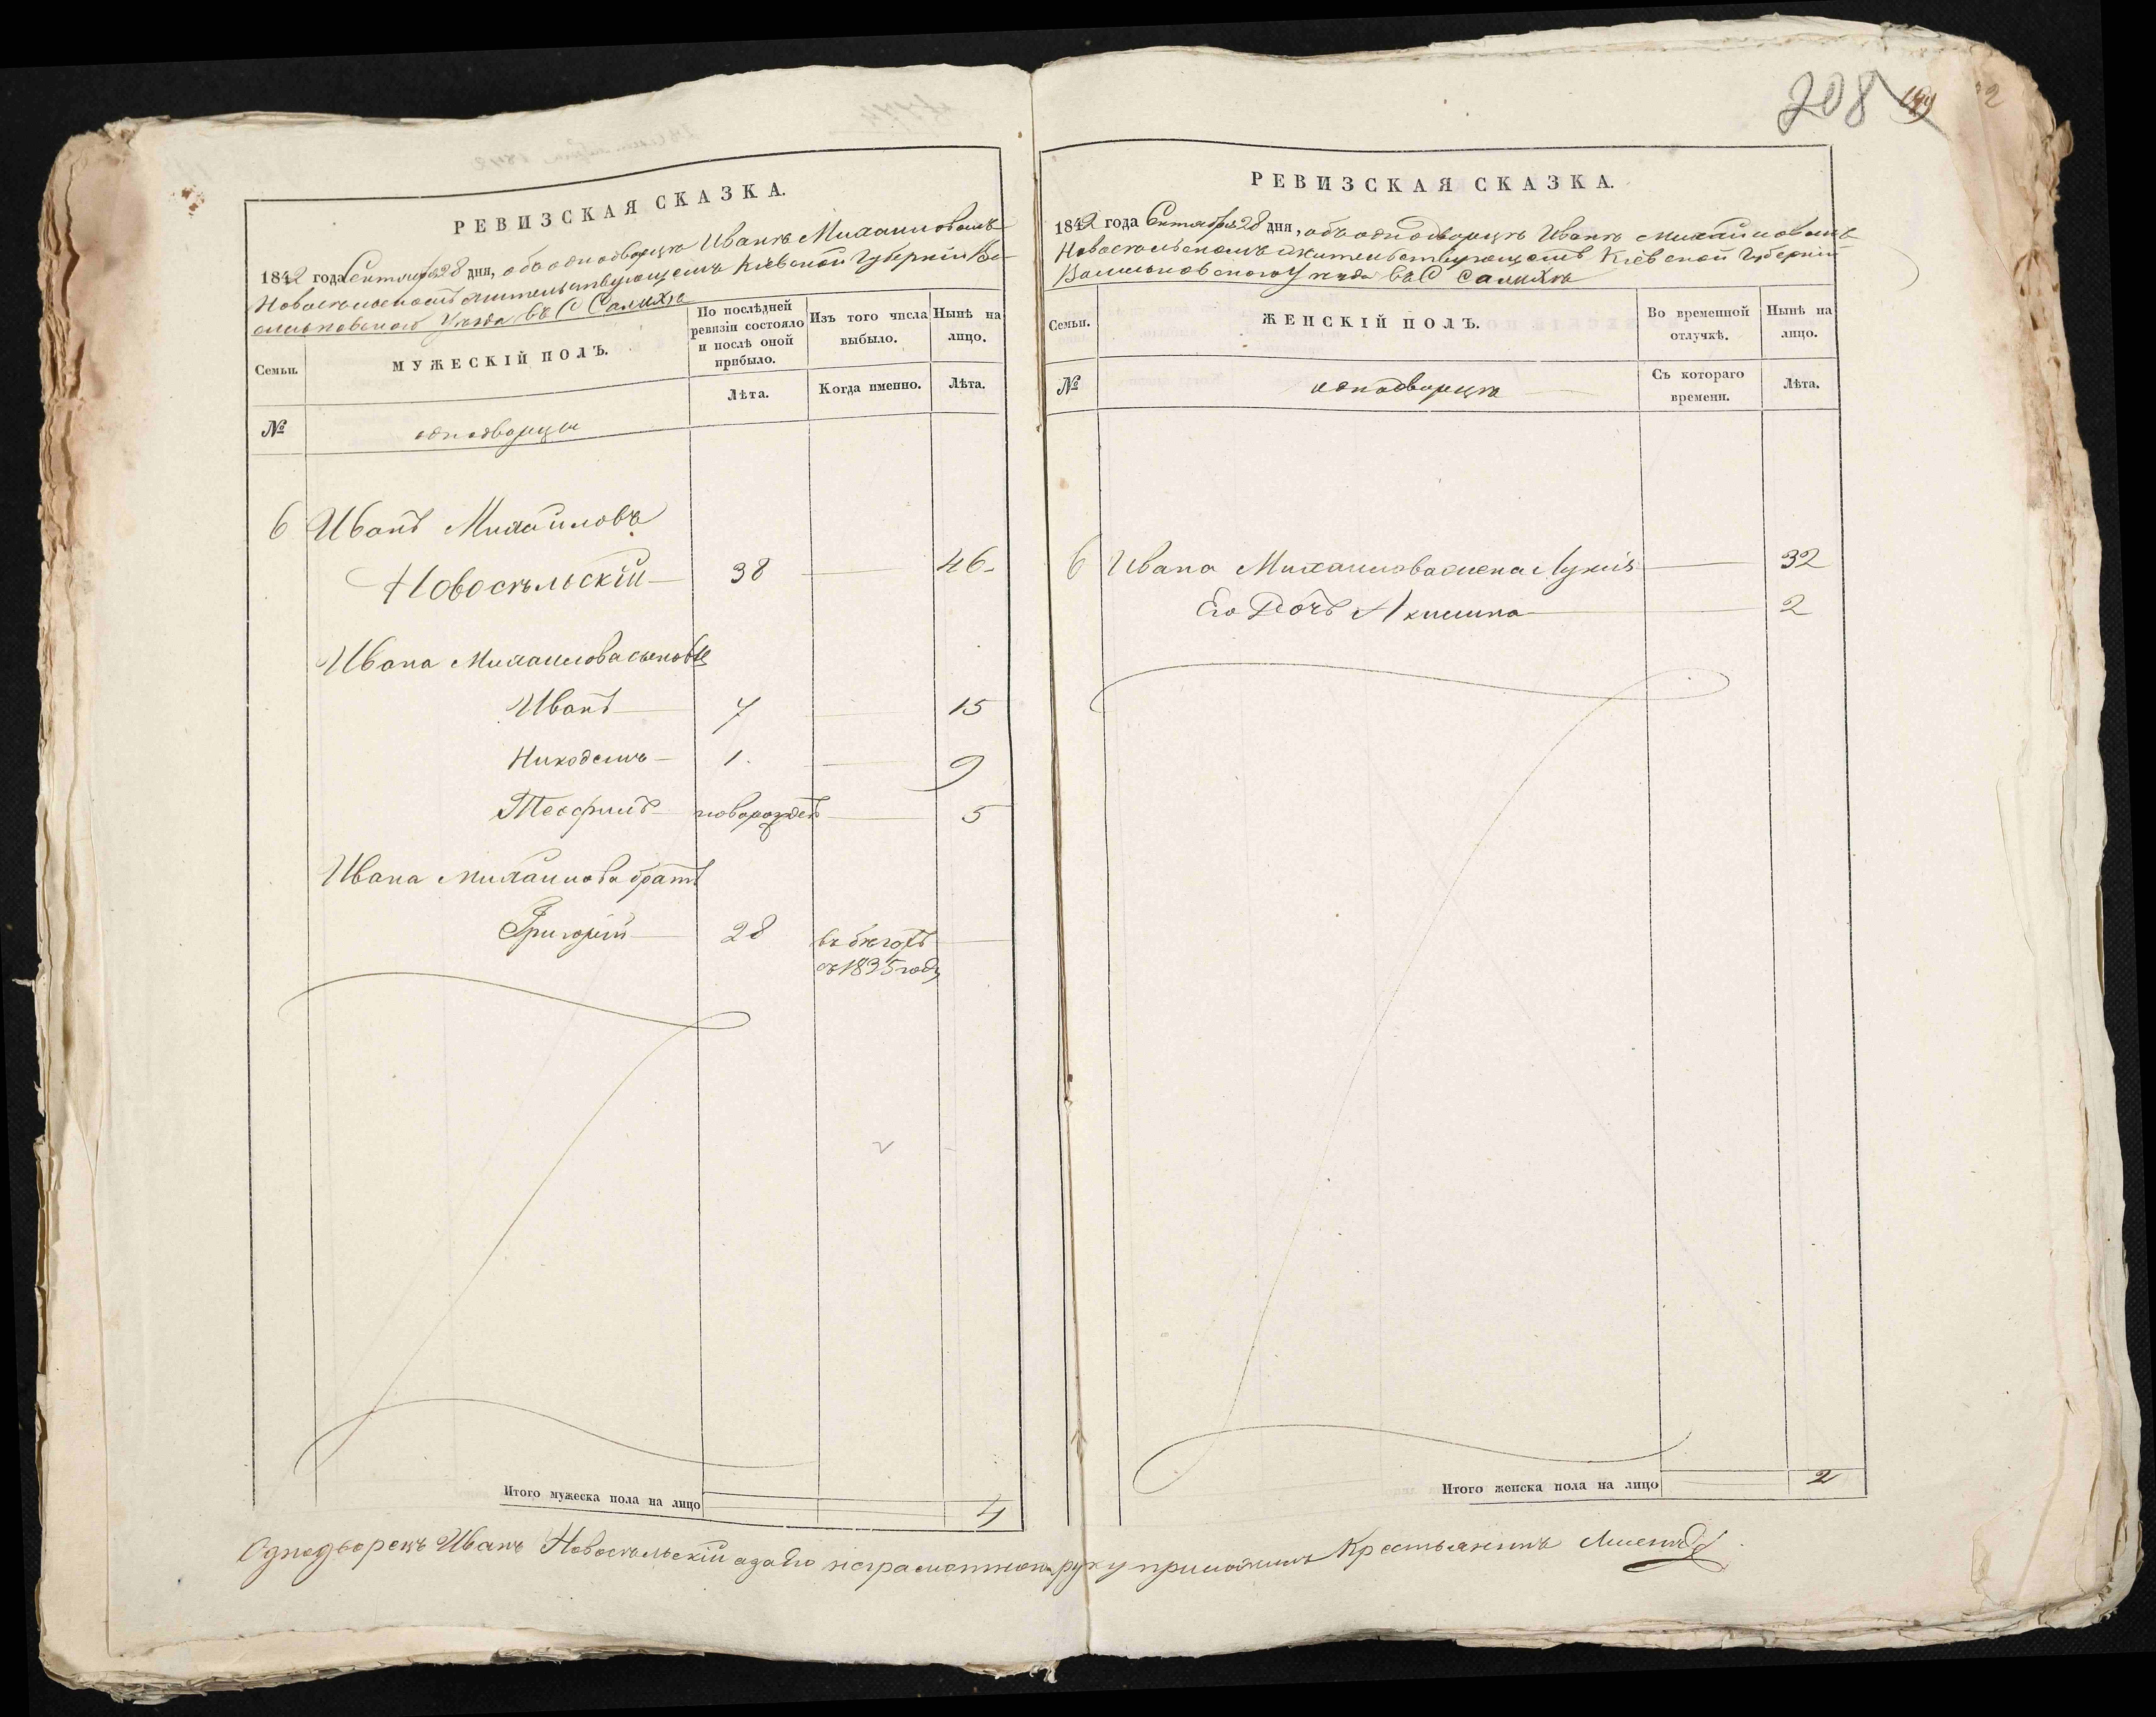 РЕВИЗСКАЯ СКАЗКА.
1842 года Сентября 28 дня, объ однодворцѣ Иванѣ Михаиловомъ
Новосѣльскомъ жительствующемъ Кіевской Губерніи Ва-
сильковскаго Уѣзда въ С Салиха
Семьи.
МУЖЕСКІЙ ПОЛЪ.
По послѣдней ревизіи состояло и послѣ оной прибыло.
Изъ того числа выбыло.
Нынѣ на лицо.
№
однодворцы
Лѣта.
Когда именно.
Лѣта.
6 Иванъ Михайловъ
Новосѣльскій 38 46
Ивана Михаилова сыновье
Иванъ 7 15
Никодемъ 1. 9
Теофилъ новорожден 5
Ивана Михаилова братъ
Григорій 28 въ бѣгахъ
съ 1835 году
Итого мужеска пола на лицо 4
208
РЕВИЗСКАЯ СКАЗКА.
1842 года Сентября 28 дня, объ однодворцѣ Иванѣ Михайловомъ
Новосѣльскомъ жительствующемъ Кіевской Губерніи
Васильковскаго Уѣзда въ С Салиха
Семьи.
ЖЕНСКІЙ ПОЛЪ.
Во временной отлучкѣ.
Нынѣ на лицо.
№
однодворцы
Съ котораго времени.
Лѣта.
6 Ивана Михаилова жена 32
Его Дочъ Акилина 2
Итого женска пола на лицо 2
Однодворецъ Иванъ Новосѣльскій а за его неграмотного руку приложилъ Крестьянинъ